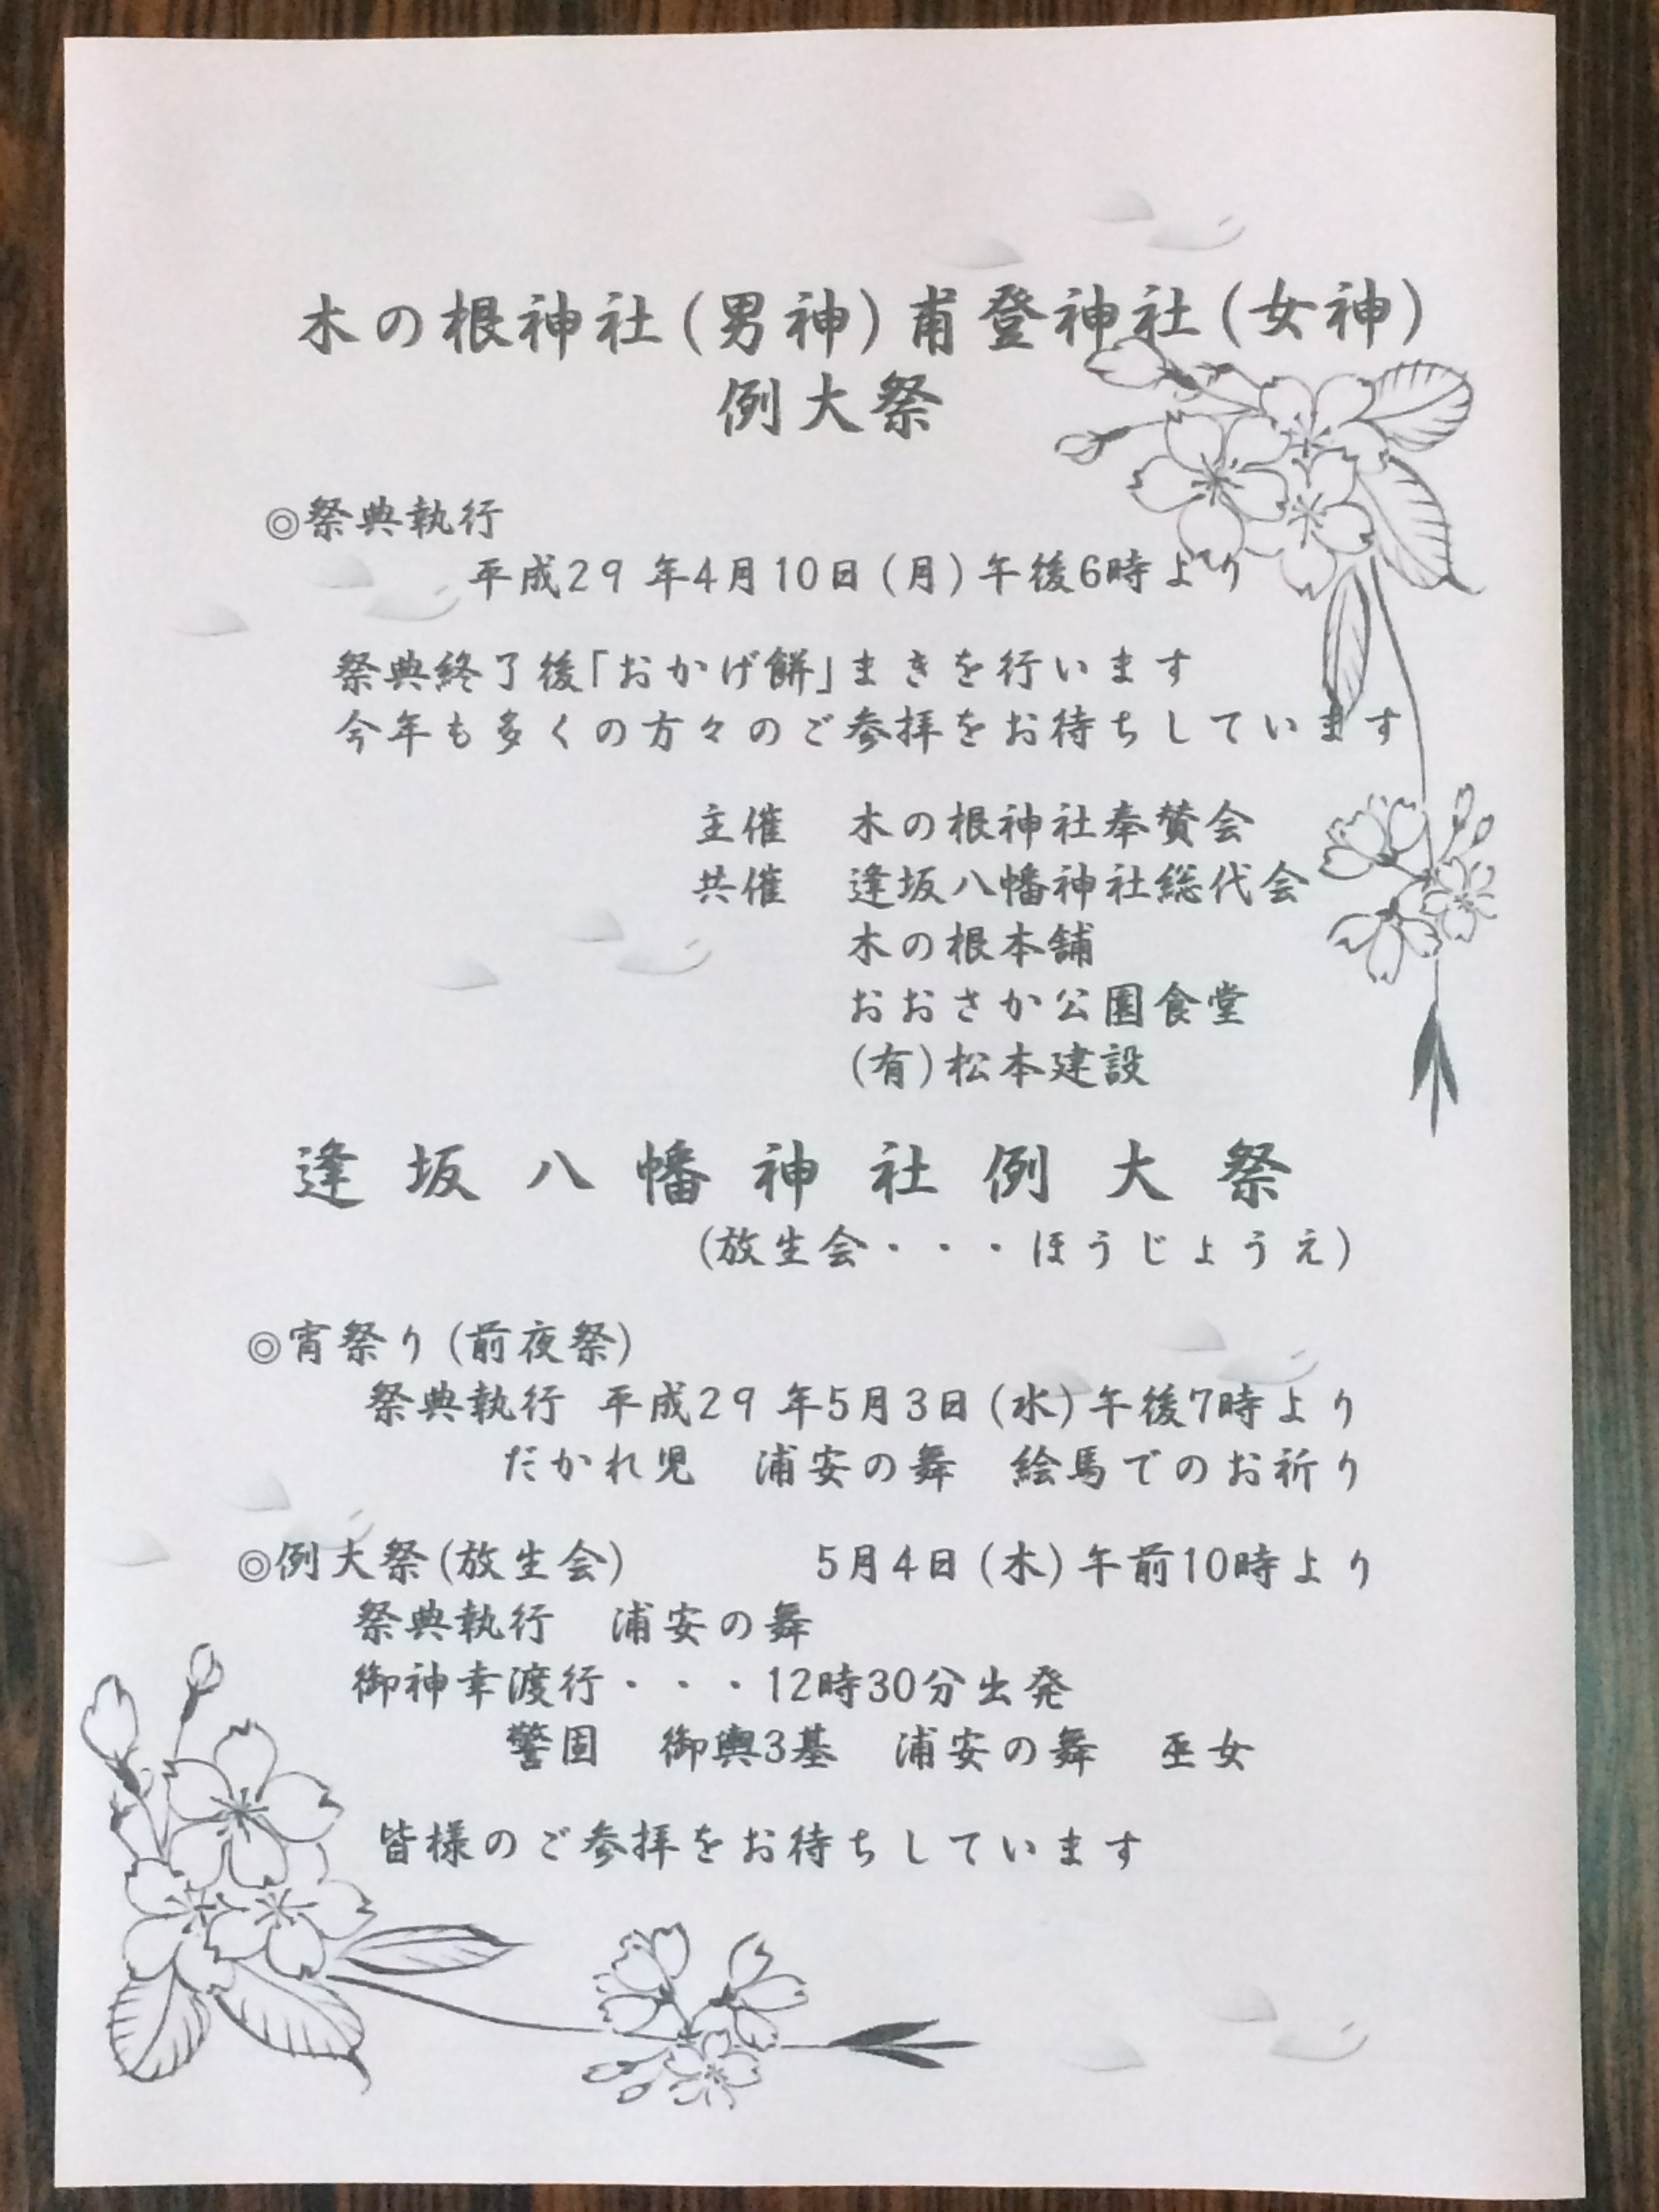 木の根神社(男神)甫登神社(女神)
例大祭
◎祭典執行
平成29年4月10日(月)午後6時より
祭典終了後「おかげ餅」まきを行います
今年も多くの方々のご参拝をお待ちしています
主催　木の根神社奉賛会
共催　逢坂八幡神社総代会
木の根本舗
おおさか公園食堂
(有)松本建設
逢坂八幡神社例大祭
(放生会・・・ほうじょうえ)
◎宵祭り(前夜祭)
祭典執行 平成29年5月3日(水)午後7時より
だかれ児　浦安の舞　絵馬でのお祈り
◎例大祭(放生会)　　　5月4日(木)午前10時より
祭典執行　浦安の舞
御神幸渡行・・・12時30分出発
警固　御輿3基　浦安の舞　巫女
皆様のご参拝をお待ちしています